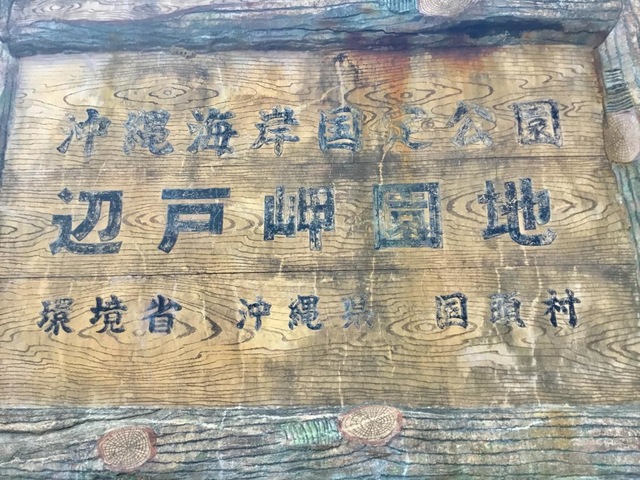 沖縄海岸国定公園
辺戸岬園地
環境省 沖縄県 国頭村